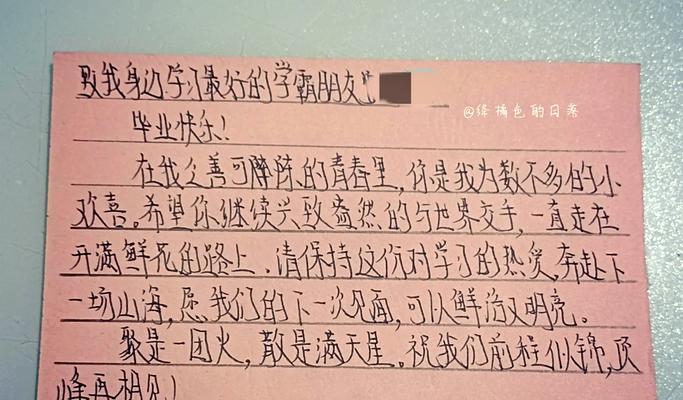 致我身边学习最好的学霸朋友
@绿橘色的日落
毕业快乐!
在我乏善可陈的青春里,你是我为数不多的小
欢喜。希望你继续兴致盎然的与世界交手,一直走在
开满鲜花的路上。请保持这份对学习的热爱,奔赴下
一场山海,愿我们的下一次见面,可以鲜活又明亮。
聚是一团火,散是满天星。祝我们前程似锦,顶
峰再相见!